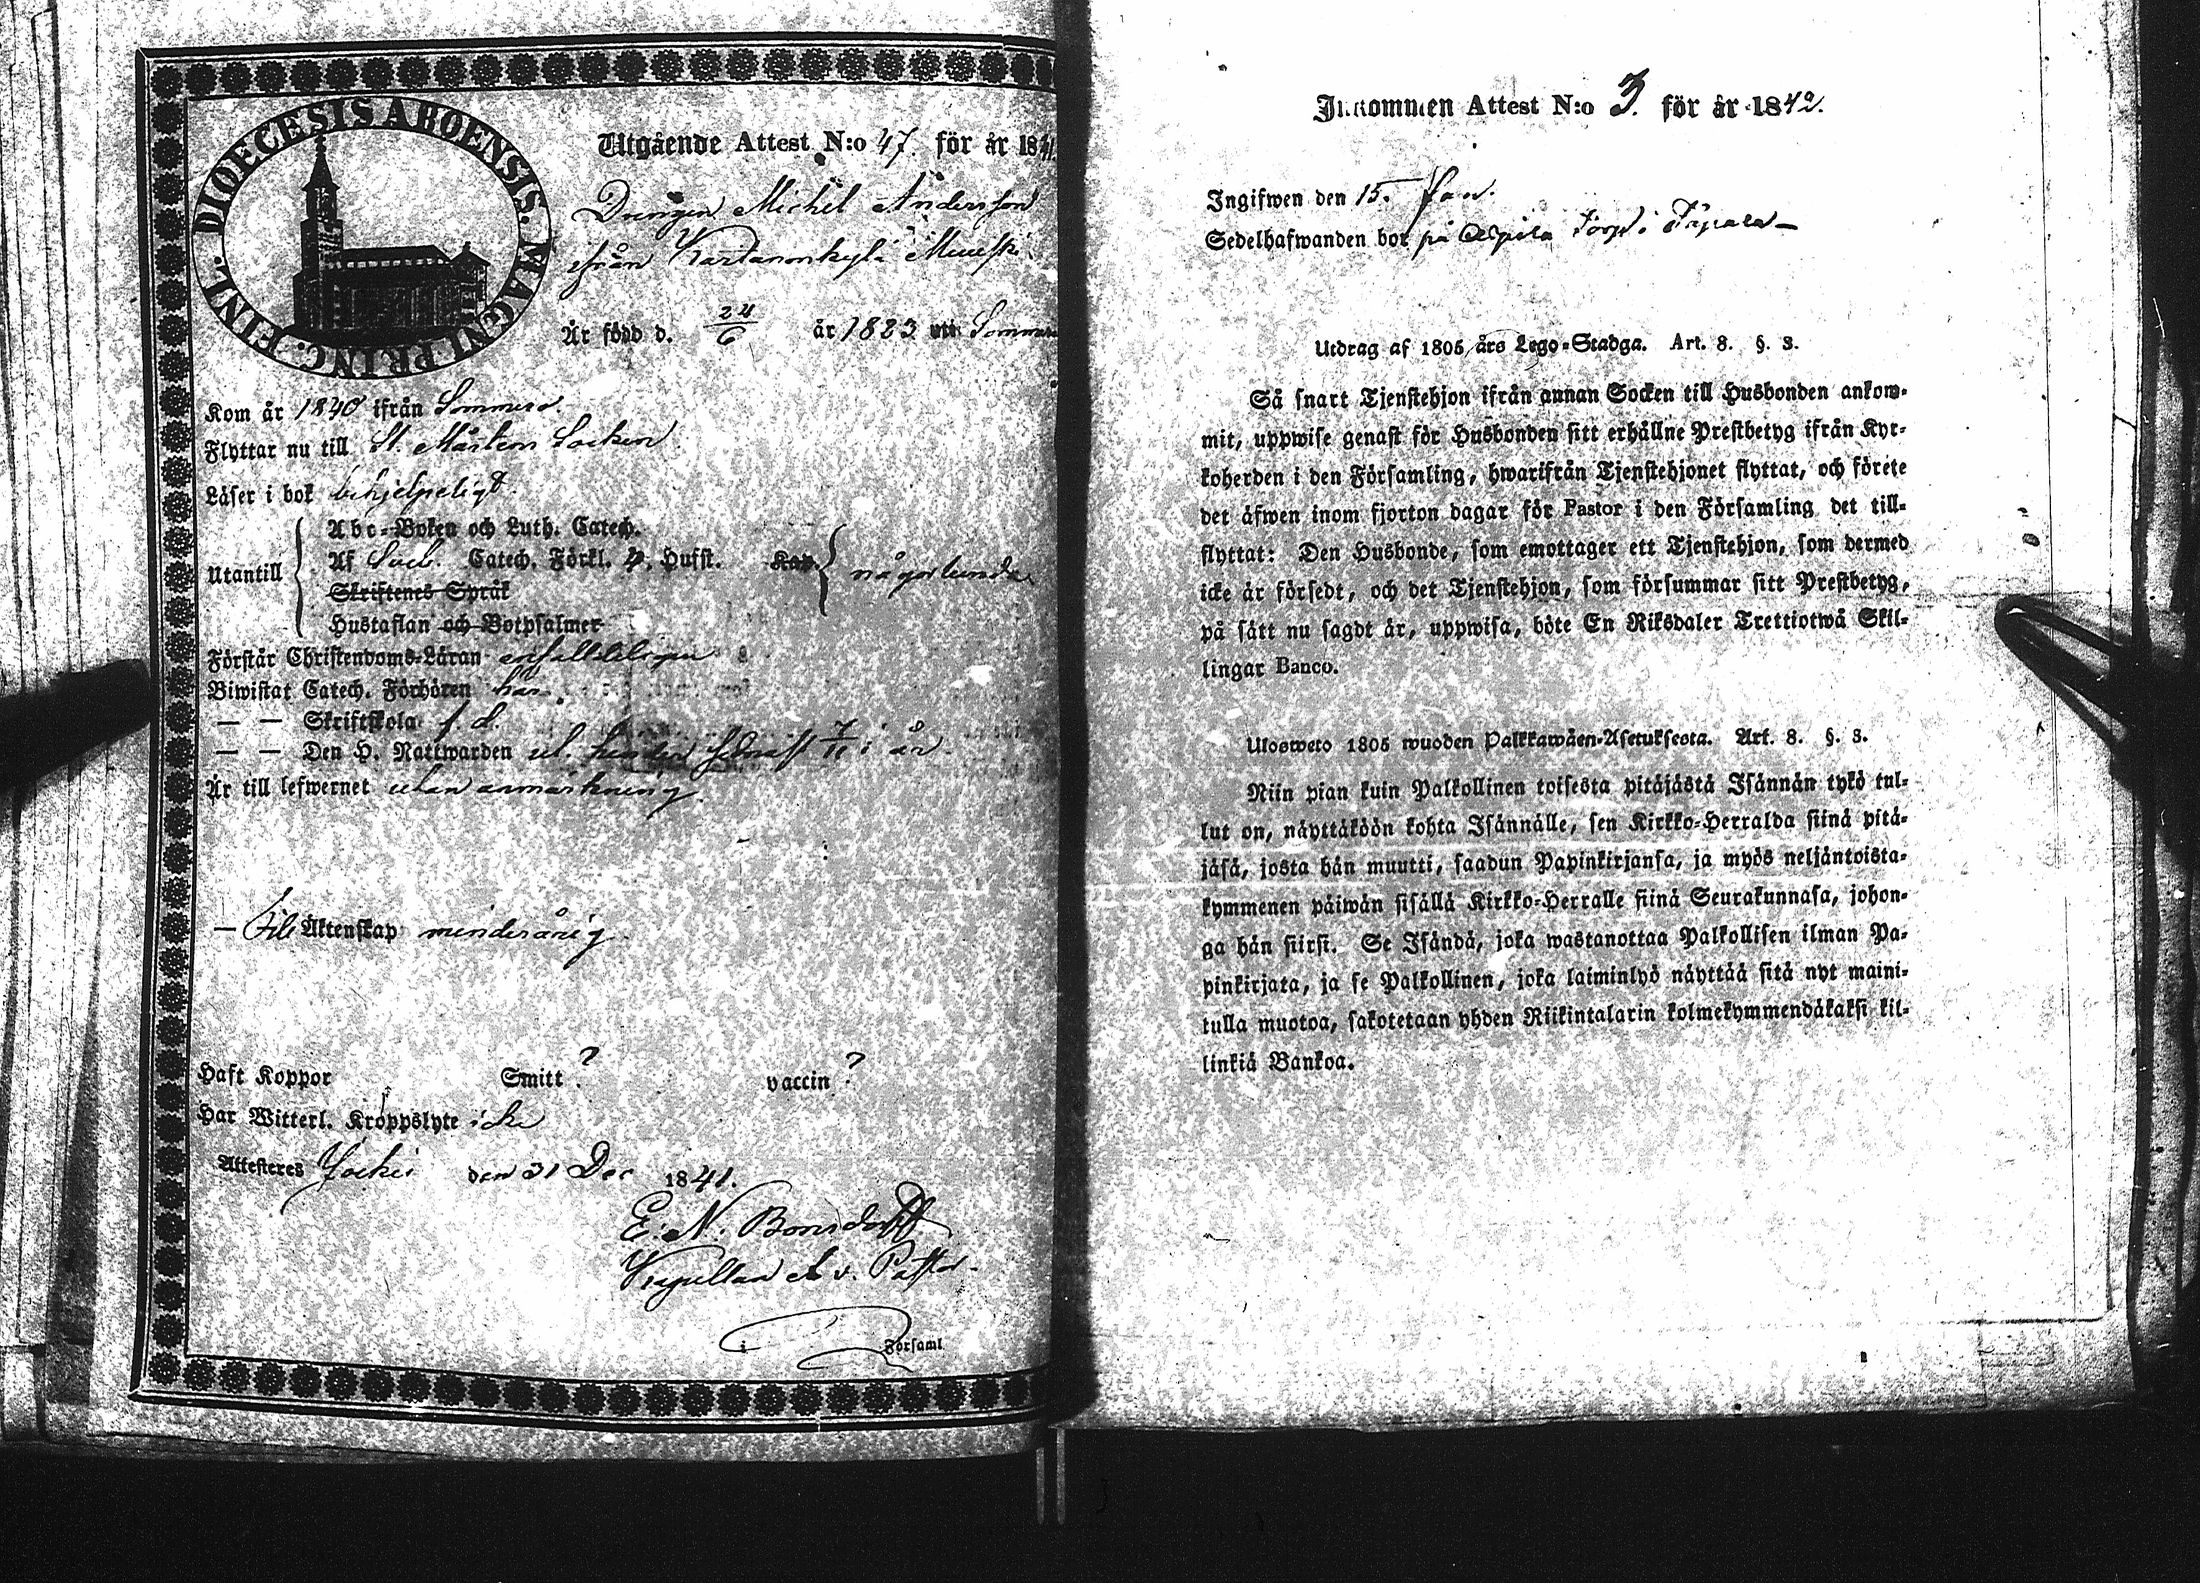 DIOECESIS ABOENSIS. MAGNI PRINC. FINL.
Utgående Attest N:o 47. för år 1841.
Drengen Michel Andersson
ifrån Kartanonkylä
Är född d. 24/6 år 1823 uti Sommero
Kom år 1840 ifrån Sommero.
Flyttar nu till St. Mårtens Socken
Läser i bok behjelpeligt.
Utantill
Abc-Boken och Luth. Catech.
Af Catech. Förkl. 4. Hufst. Kap.
någorlunda
Skriftenes Språk
Hustaflan och Botpsalmer
Förstår Christendoms-Läran enfalldeligen
Biwistat Catech. Förhören här
— — Skriftskola f. d.
— — Den H. Nattwarden sednast 7/11 i år
Är till lefwernet utan anmärkning.
— Till Äktenskap minderårig.
Haft Koppor Smitt ? vaccin ?
Har Witterl. Kroppslyte icke
Attesteres Jockis den 31 Dec 1841.
E. N. Bonsdorff
Kapellan v. Pastor
i Församl
Inkommen Attest N:o 3. för år 1842.
Ingifwen den 15. Jan.
Sedelhafwanden bor på torp i
Utdrag af 1805 års Lego-Stadga. Art. 8. §. 3.
Så snart Tjenstehjon ifrån annan Socken till Husbonden ankom-
mit, uppwise genast för Husbonden sitt erhållne Prestbetyg ifrån Kyr-
koherden i den Församling, hwarifrån Tjenstehjonet flyttat, och förete
det äfwen inom fjorton dagar för Pastor i den Församling det till-
flyttat: Den Husbonde, som emottager ett Tjenstehjon, som dermed
icke är försedt, och det Tjenstehjon, som försummar sitt Prestbetyg,
på sätt nu sagdt är, uppwisa, böte En Riksdaler Trettiotwå Skil-
lingar Banco.
Ulosweto 1805 wuoden Palkkawäen-Asetuksesta. Art. 8. §. 3.
Niin pian kuin Palkollinen toisesta pitäjästä Isännän tykö tul-
lut on, näyttäköön kohta Isännälle, sen Kirkko-Herralda siinä pitä-
jäsä, josta hän muutti, saadun Papinkirjansa, ja myös neljäntoista-
kymmenen päiwän sisällä Kirkko-Herralle siinä Seurakunnasa, johon-
ga hän siirsi. Se Isändä, joka wastanottaa Palkollisen ilman Pa-
pinkirjata, ja se Palkollinen, joka laiminlyö näyttää sitä nyt maini-
tulla muotoa, sakotetaan yhden Riikintalarin kolmekymmendäkaksi kil-
linkiä Bankoa.